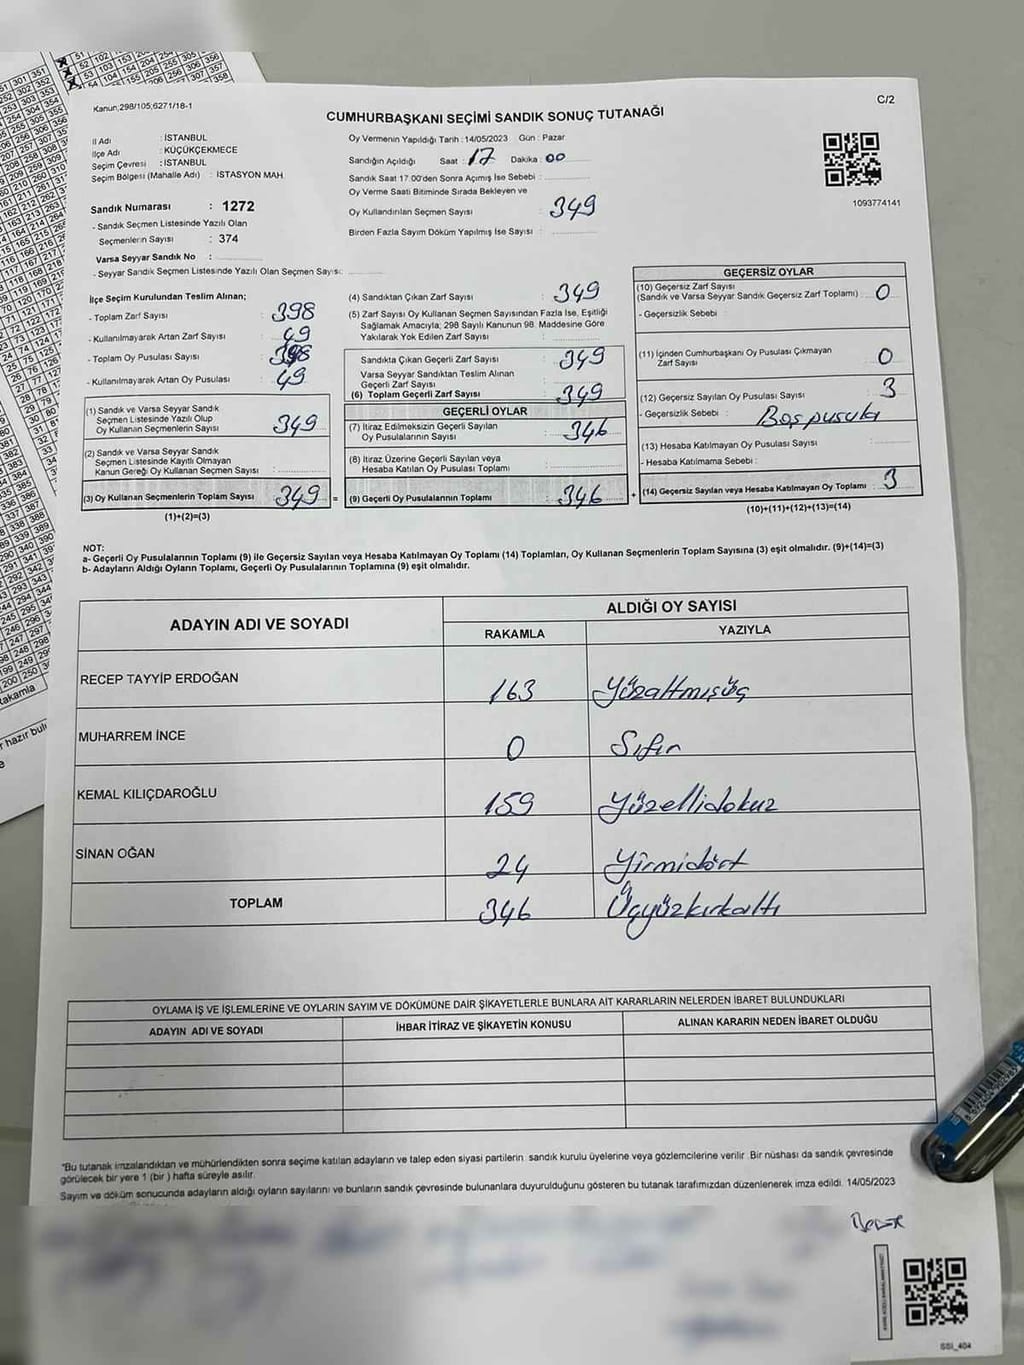 Kanun;298/105;6271/18-1
C/2
CUMHURBAŞKANI SEÇİMİ SANDIK SONUÇ TUTANAĞI
İl Adı : İSTANBUL
İlçe Adı : KÜÇÜKÇEKMECE
Seçim Çevresi : İSTANBUL
Seçim Bölgesi (Mahalle Adı) : İSTASYON MAH.
Sandık Numarası : 1272
- Sandık Seçmen Listesinde Yazılı Olan
Seçmenlerin Sayısı : 374
Varsa Seyyar Sandık No :
- Seyyar Sandık Seçmen Listesinde Yazılı Olan Seçmen Sayısı:
Oy Vermenin Yapıldığı Tarih :14/05/2023 Gün : Pazar
Sandığın Açıldığı Saat : 17 Dakika : 00
Sandık Saat 17:00'den Sonra Açımış İse Sebebi :
Oy Verme Saati Bitiminde Sırada Bekleyen ve
Oy Kullandırılan Seçmen Sayısı : 349
Birden Fazla Sayım Döküm Yapılmış İse Sayısı :
1093774141
İlçe Seçim Kurulundan Teslim Alınan;
- Toplam Zarf Sayısı : 398
- Kullanılmayarak Artan Zarf Sayısı : 49
- Toplam Oy Pusulası Sayısı : 398
- Kullanılmayarak Artan Oy Pusulası : 49
(1) Sandık ve Varsa Seyyar Sandık
Seçmen Listesinde Yazılı Olup
Oy Kullanan Seçmenlerin Sayısı : 349
(2) Sandık ve Varsa Seyyar Sandık
Seçmen Listesinde Kayıtlı Olmayan
Kanun Gereği Oy Kullanan Seçmen Sayısı :
(3) Oy Kullanan Seçmenlerin Toplam Sayısı 349 =
(1)+(2)=(3)
(4) Sandıktan Çıkan Zarf Sayısı : 349
(5) Zarf Sayısı Oy Kullanan Seçmen Sayısından Fazla İse, Eşitliği
Sağlamak Amacıyla; 298 Sayılı Kanunun 98. Maddesine Göre
Yakılarak Yok Edilen Zarf Sayısı :
Sandıkta Çıkan Geçerli Zarf Sayısı : 349
Varsa Seyyar Sandıktan Teslim Alınan
Geçerli Zarf Sayısı :
(6) Toplam Geçerli Zarf Sayısı : 349
GEÇERLİ OYLAR
(7) İtiraz Edilmeksizin Geçerli Sayılan
Oy Pusulalarının Sayısı : 346
(8) İtiraz Üzerine Geçerli Sayılan veya
Hesaba Katılan Oy Pusulası Toplamı :
(9) Geçerli Oy Pusulalarının Toplamı : 346 +
GEÇERSİZ OYLAR
(10) Geçersiz Zarf Sayısı
(Sandık ve Varsa Seyyar Sandık Geçersiz Zarf Toplamı) : 0
- Geçersizlik Sebebi :
(11) İçinden Cumhurbaşkanı Oy Pusulası Çıkmayan
Zarf Sayısı : 0
(12) Geçersiz Sayılan Oy Pusulası Sayısı : 3
- Geçersizlik Sebebi : Boş pusula
(13) Hesaba Katılmayan Oy Pusulası Sayısı :
- Hesaba Katılmama Sebebi :
(14) Geçersiz Sayılan veya Hesaba Katılmayan Oy Toplamı : 3
(10)+(11)+(12)+(13)=(14)
NOT:
a- Geçerli Oy Pusulalarının Toplamı (9) ile Geçersiz Sayılan veya Hesaba Katılmayan Oy Toplamı (14) Toplamları, Oy Kullanan Seçmenlerin Toplam Sayısına (3) eşit olmalıdır. (9)+(14)=(3)
b- Adayların Aldığı Oyların Toplamı, Geçerli Oy Pusulalarının Toplamına (9) eşit olmalıdır.
ADAYIN ADI VE SOYADI
ALDIĞI OY SAYISI
RAKAMLA YAZIYLA
RECEP TAYYİP ERDOĞAN 163 Yüzaltmışüç
MUHARREM İNCE 0 Sıfır
KEMAL KILIÇDAROĞLU 159 Yüzellidokuz
SİNAN OĞAN 24 Yirmidört
TOPLAM 346 Üçyüzkırkaltı
OYLAMA İŞ VE İŞLEMLERİNE VE OYLARIN SAYIM VE DÖKÜMÜNE DAİR ŞİKAYETLERLE BUNLARA AİT KARARLARIN NELERDEN İBARET BULUNDUKLARI
ADAYIN ADI VE SOYADI İHBAR İTİRAZ VE ŞİKAYETİN KONUSU ALINAN KARARIN NEDEN İBARET OLDUĞU
"Bu tutanak imzalandıktan ve mühürlendikten sonra seçime katılan adayların ve talep eden siyasi partilerin sandık kurulu üyelerine veya gözlemcilerine verilir. Bir nüshası da sandık çevresinde
görülecek bir yere 1 (bir) hafta süreyle asılır.
Sayım ve döküm sonucunda adayların aldığı oyların sayılarını ve bunların sandık çevresinde bulunanlara duyurulduğunu gösteren bu tutanak tarafımızdan düzenlenerek imza edildi. 14/05/2023
SSI_404